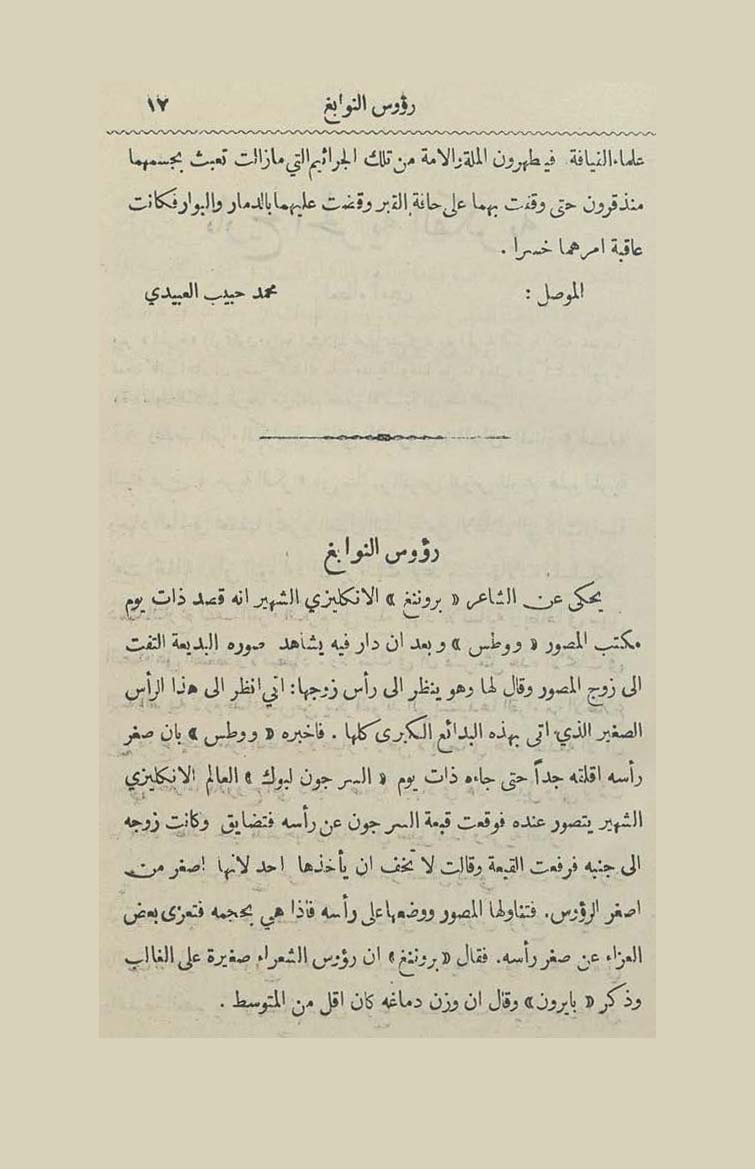 رؤوس النوابغ ١٧
علماء القيافة فيطهرون الملة والامة من تلك الجراثيم التي مازالت تعبث بجسمهما
منذ قرون حتى وقفت بهما على حافة القبر وقضت عليهما بالدمار والبوار فكانت
عاقبة امرهما خسرا .
الموصل : محمد حبيب العبيدي
رؤوس النوابغ
يحكى عن الشاعر « بروننغ » الانكليزي الشهير انه قصد ذات يوم
مكتب المصور « ووطس » وبعد ان دار فيه يشاهد صوره البديعة التفت
الى زوج المصور وقال لها وهو ينظر الى رأس زوجها: اني انظر الى هذا الرأس
الصغير الذي اتى بهذه البدائع الكبرى كلها . فاخبره « ووطس » بان صغر
رأسه اقلقه جداً حتى جاءه ذات يوم « السر جون لبوك » العالم الانكليزي
الشهير يتصور عنده فوقعت قبعة السر جون عن رأسه فتضايق وكانت زوجه
الى جنبه فرفعت القبعة وقالت لا تخف ان يأخذها احد لانها اصغر من
اصغر الرؤوس. فتناولها المصور ووضعها على رأسه فاذا هي بحجمه فتعزى بعض
العزاء عن صغر رأسه. فقال « بروننغ » ان رؤوس الشعراء صغيرة على الغالب
وذكر « بايرون » وقال ان وزن دماغه كان اقل من المتوسط .